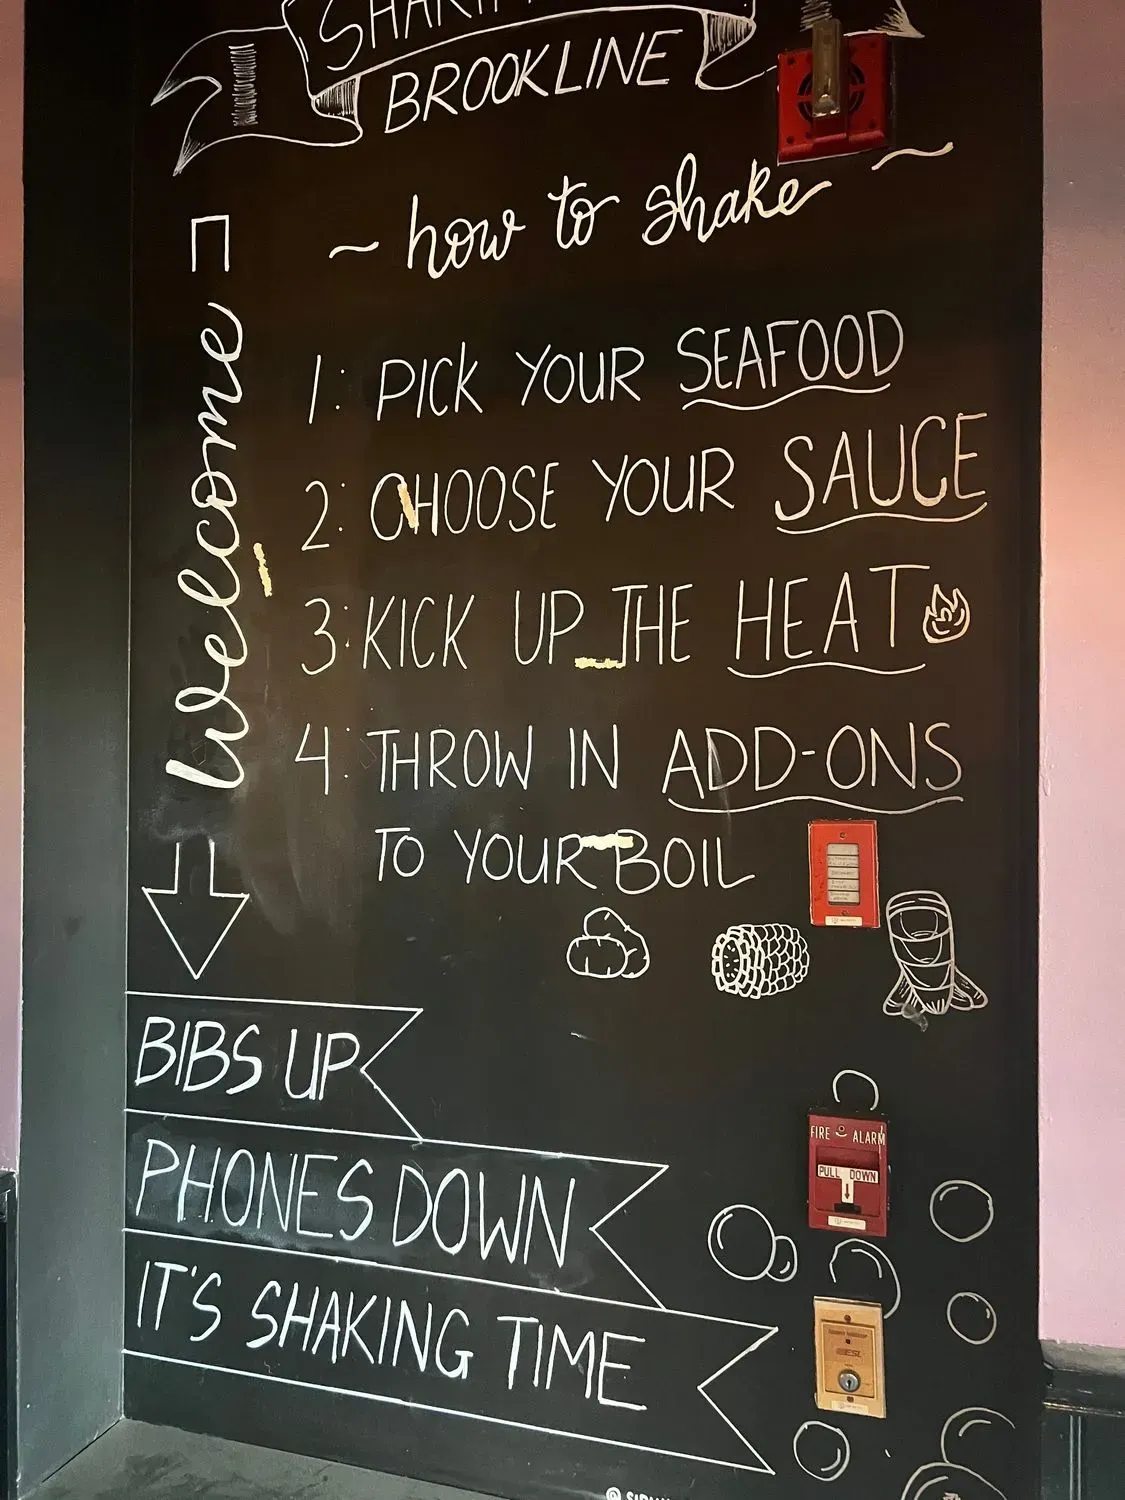 BROOKLINE
~ how to shake ~
Welcome
1: PICK YOUR SEAFOOD
2: CHOOSE YOUR SAUCE
3: KICK UP THE HEAT
4: THROW IN ADD-ONS
TO YOUR BOIL
BIBS UP
PHONES DOWN
IT'S SHAKING TIME
FIRE ALARM
PULL DOWN